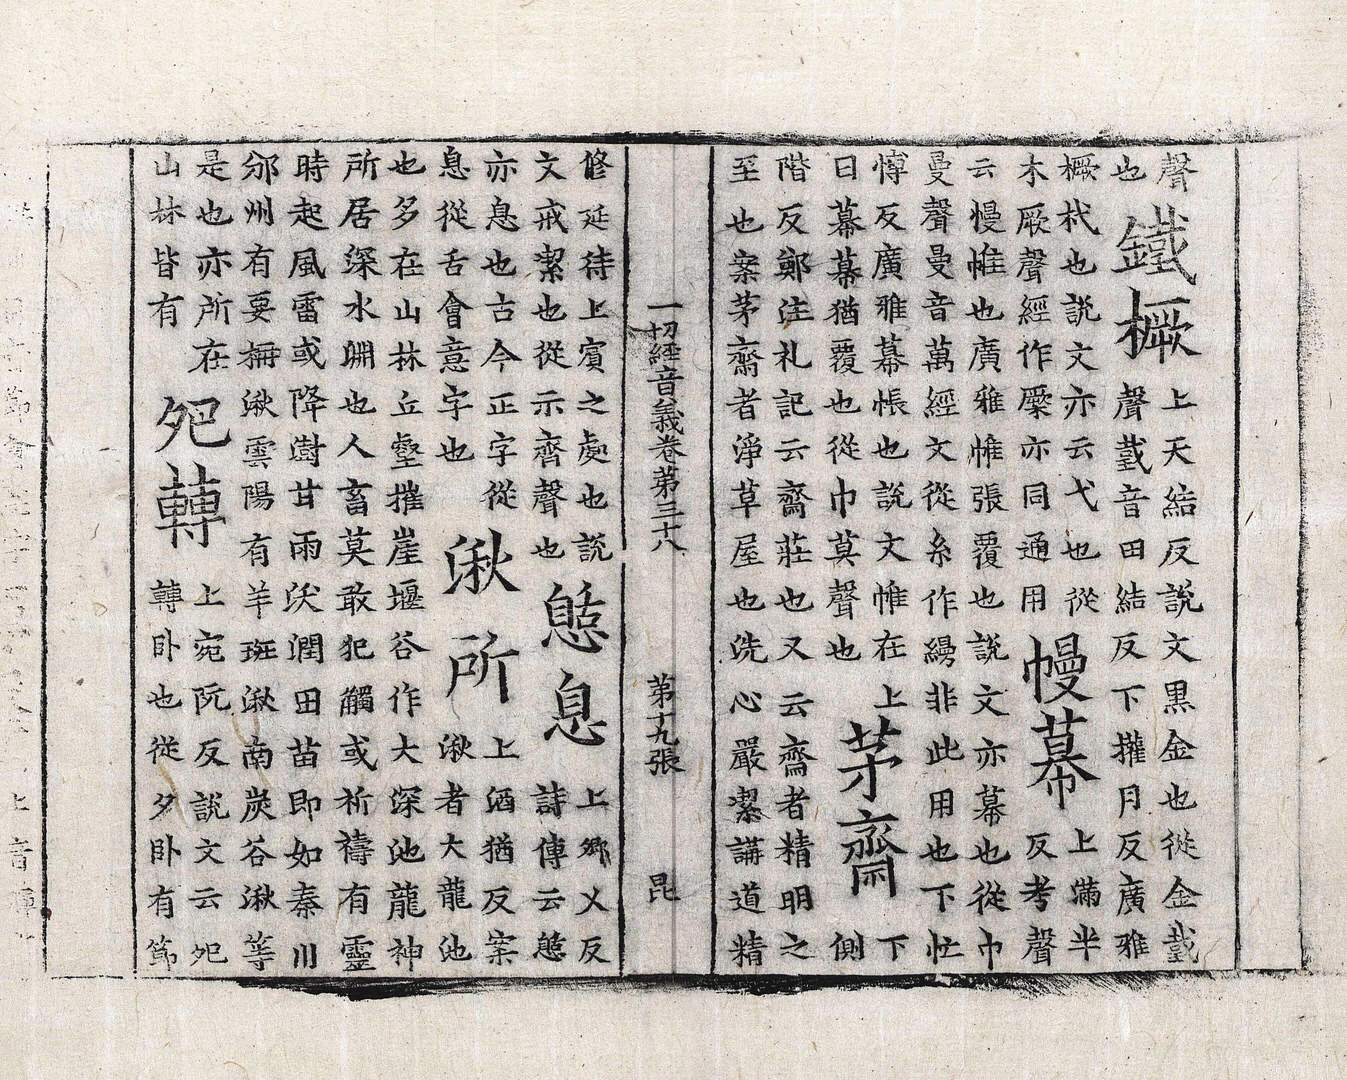 聲
也
鐵橛
上天結反説文黒金也從金㦶
聲㦶音田結反下㩁月反廣雅
橛杙也説文亦云弋也從
木厥聲經作橜亦同通用
幔幕
上滿半
反考聲
云幔帷也廣雅帷張覆也説文亦幕也從巾
曼聲曼音萬經文從糸作縵非此用也下忙
愽反廣雅幕帳也説文帷在上
曰幕幕猶覆也從巾莫聲也
茅齋
下
側
階反鄭注礼記云齋莊也又云齋者精明之
至也案茅齋者淨草屋也洗心嚴潔講道精
一切經音義卷第三十八 第十九張 昆
修延待上賓之處也説
文戒潔也從示齊聲也
憩息
上卿乂反
詩傳云憩
亦息也古今正字從
息從舌會意字也
湫所
上酒猶反案
湫者大龍池
也多在山林丘壑摧崖堰谷作大深池龍神
所居深水淵也人畜莫敢犯觸或祈禱有靈
時起風雷或降澍甘雨沃潤田苗即如秦川
邠州有要柵湫雲陽有羊班湫南炭谷湫等
是也亦所在
山林皆有
夗轉
上宛阮反説文云夗
轉卧也從夕卧有節